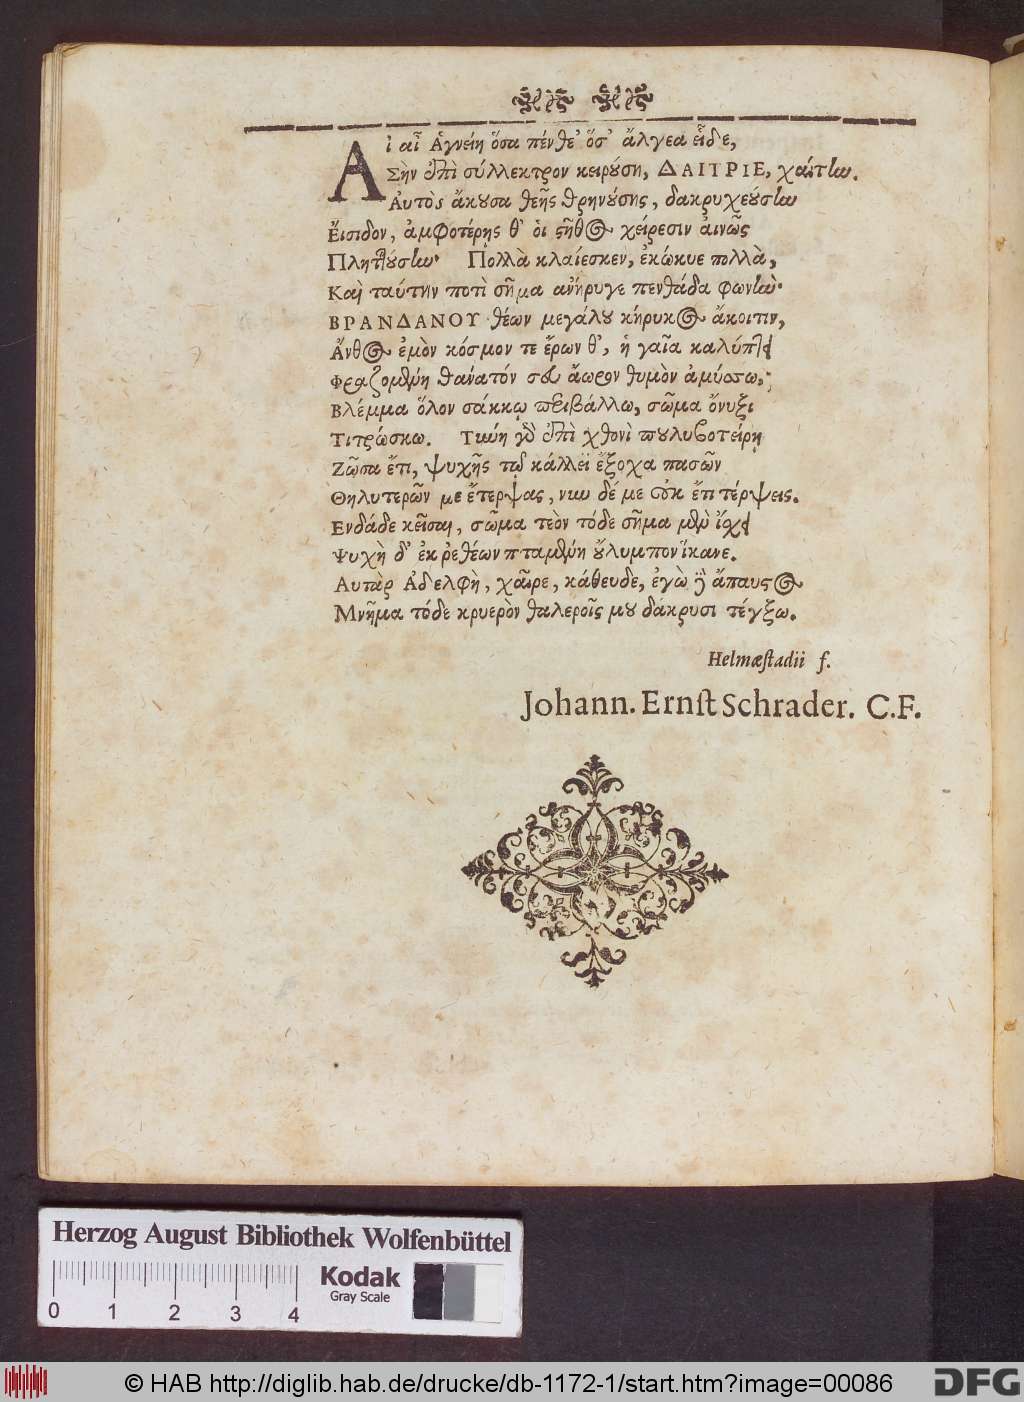 Αἰ αἲ Ἁγνείη ὅσα πένθε᾽ ὅσ᾽ ἄλγεα εἶδε,
Σὴν ἐπὶ σύλλεκτρον κειρούσῃ, ΔΑΙΤΡΙΕ, χαίτην.
Αὐτὸς ἄκουσα θεῆς θρηνούσης, δακρυχεούσην
Εἴσιδον, ἀμφοτέρῃς θ᾽ ὁὶ στῆθος χείρεσιν ἀινῶς
Πληττούσην· Πολλὰ κλαίεσκεν, ἐκώκυε πολλὰ,
Καὶ ταύτην ποτὶ σῆμα ἀνήρυγε πενθάδα φωνὴν·
ΒΡΑΝΔΑΝΟΥ θέων μεγάλου κήρυκος ἄκοιτιν,
Ἄνθος ἐμὸν κόσμον τε ἔρων θ᾽, ἡ γαῖα καλύπτει
Φραζομένη θανατόν σευ ἄωρον θυμὸν ἀμύσσω,
Βλέμμα ὅλον σάκκῳ περιβάλλω, σῶμα ὄνυξι
Τιτρώσκω. Τύνη γὸ ἐπὶ χθονὶ πουλυβοτείρῃ
Ζῶσα ἔτι, ψυχῆς τῷ κάλλεϊ ἔξοχα πασῶν
Θηλυτερῶν με ἔτερψας, νῦν δέ με οὐκ ἔτι τέρψεις.
Ενδάδε κεῖσαι, σῶμα τεὸν τόδε σῆμα μὲν ἴχει
Ψυχὴ δ᾽ ἐκ ῥεθέων πταμένη οὔλυμπον ἵκανε.
Αυτὰρ Ἀδελφὴ, χαῖρε, κάθευδε, ἐγὼ δὲ ἄπαυστος
Μνῆμα τόδε κρυερὸν θαλεροῖς μου δάκρυσι τέγξω.
Helmæstadii f.
Johann. Ernst Schrader. C.F.
Herzog August Bibliothek Wolfenbüttel
0 1 2 3 4
Kodak
Gray Scale
© HAB http://diglib.hab.de/drucke/db-1172-1/start.htm?image=00086
DFG